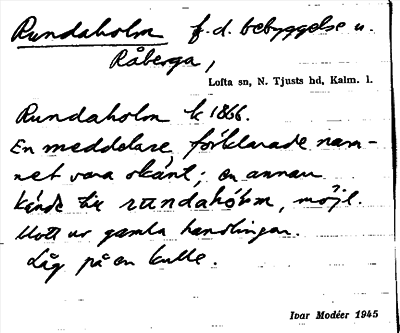 Rundaholm f.d. bebyggelse u.
Råberga,
Lofta sn, N. Tjusts hd, Kalm. l.
Rundaholm k 1866.
En meddelare förklarade nam-
net vara okänt; en annan
kände til rundahòlm, möjl.
blott ur gamla handlingar.
Låg på en kulle.
Ivar Modéer 1945